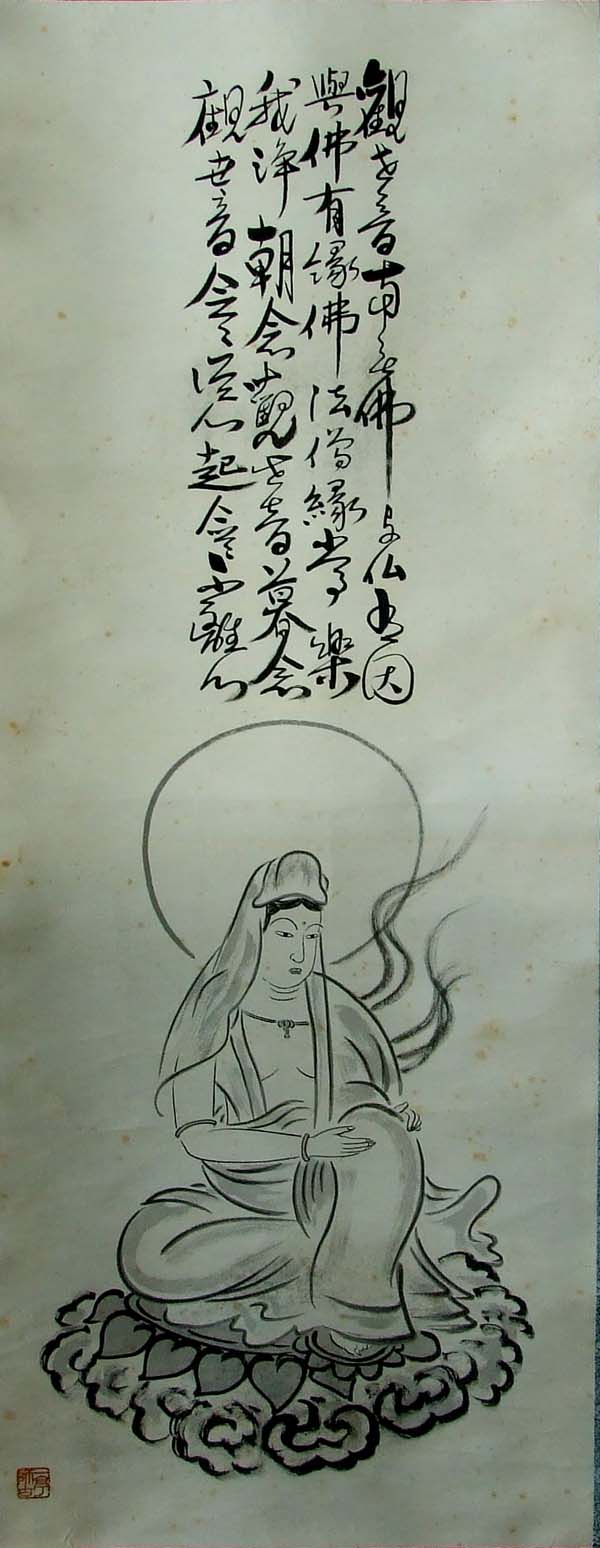 觀世音南無佛与仏有因
與佛有縁佛法僧縁常樂
我淨朝念觀世音暮念
觀世音念〻從心起念〻不離心